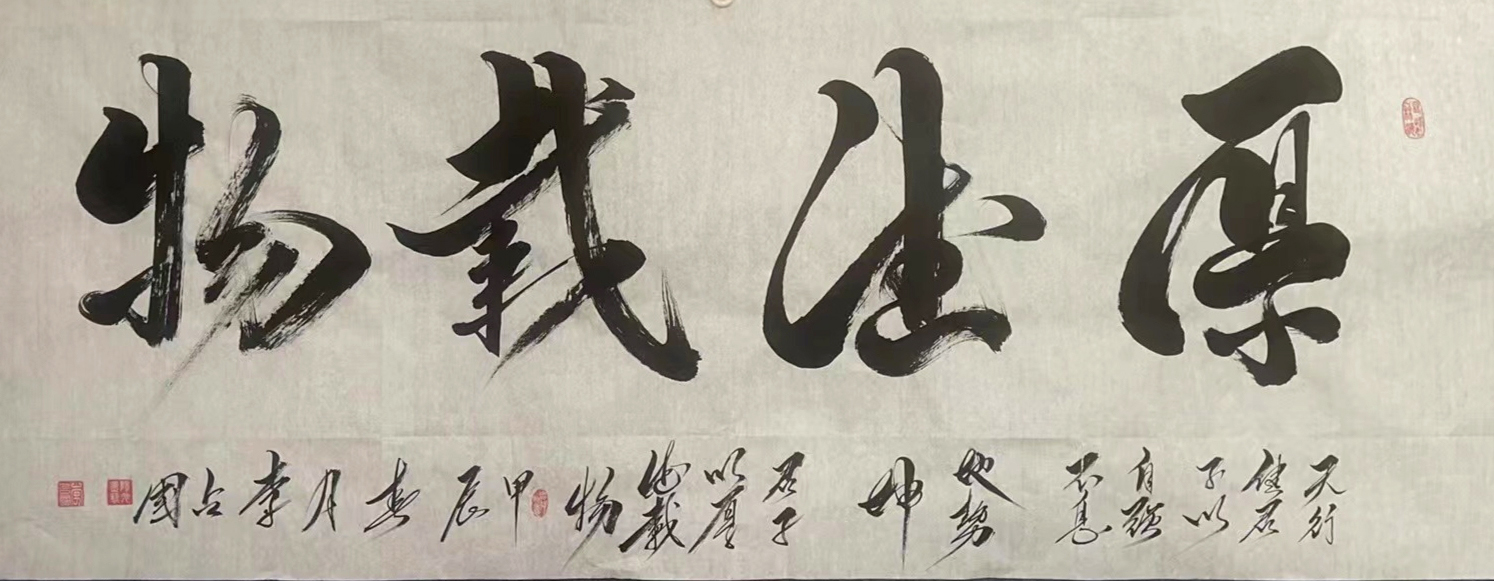 厚德載物
天行
健君
子以
自强
不息
地势
坤
君子
以厚
德載
物
甲辰春月李占國